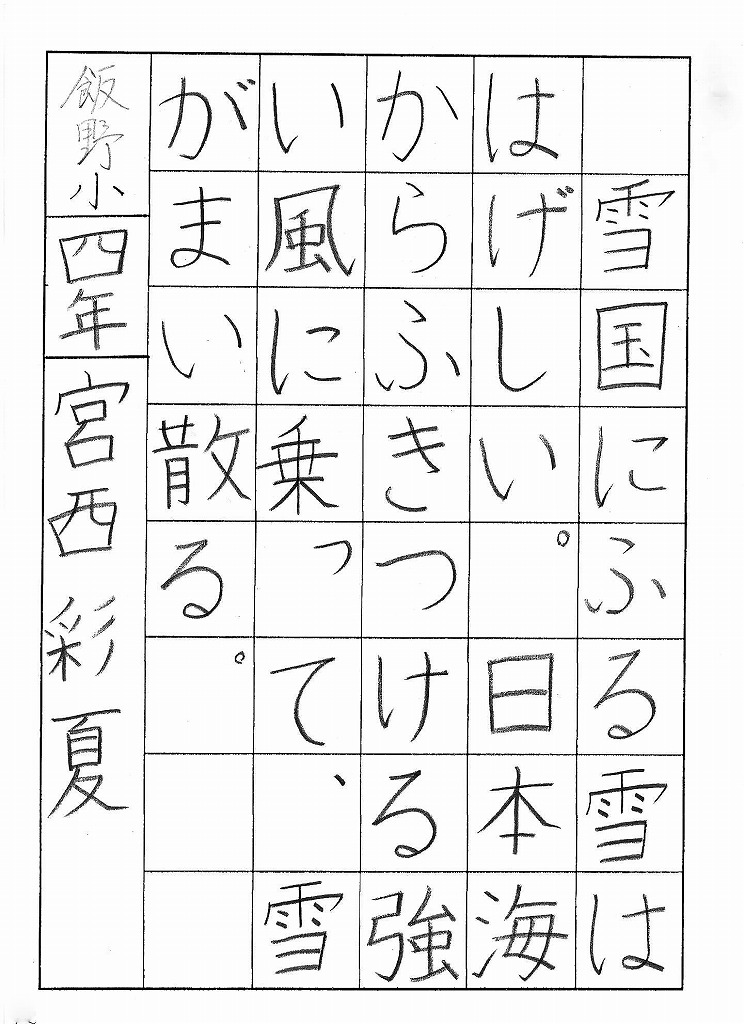 雪国にふる雪は
はげしい。日本海
からふきつける強
い風に乗って、雪
がまい散る。
飯野小四年宮西彩夏